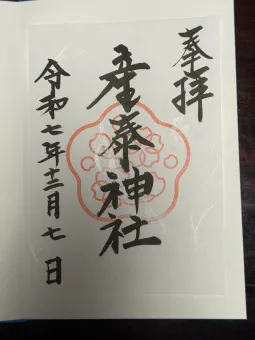 奉拝
産泰神社
令和七年十二月七日